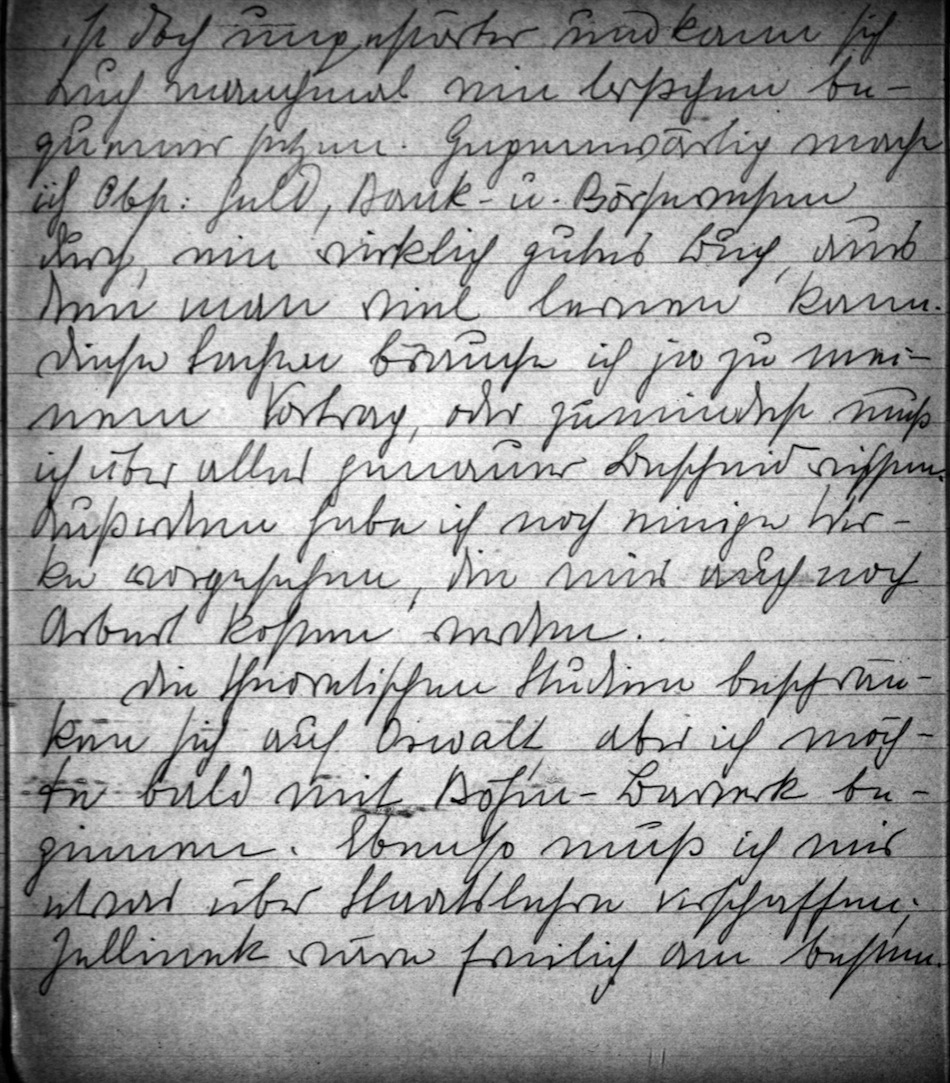 ist doch ungestörter und kann sich
auch manchmal ein bißchen be-
quemer setzen. Gegenwärtig mache
ich Obst: Geld, Bank- u. Börsenwesen
durch, ein wirklich gutes Buch, aus
dem man viel lernen kann.
Diese Sachen brauche ich ja zu mei-
nem Vortrag, oder zumindest muß
ich über alles genauer Bescheid wissen.
Außerdem habe ich noch einige Wer-
ke vorgesehen, die mir auch noch
Arbeit kosten werden.
Die theoretischen Studien beschrän-
ken sich auf Oswalt, aber ich möch-
te bald mit Böhm-Bawerk be-
ginnen. Ebenso muß ich mir
etwas über Staatslehre verschaffen;
Jellinek wäre freilich am besten.